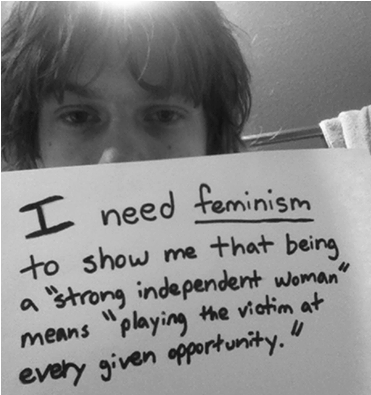 I need feminism
to show me that being
a "strong independent woman"
means "playing the victim at
every given opportunity."